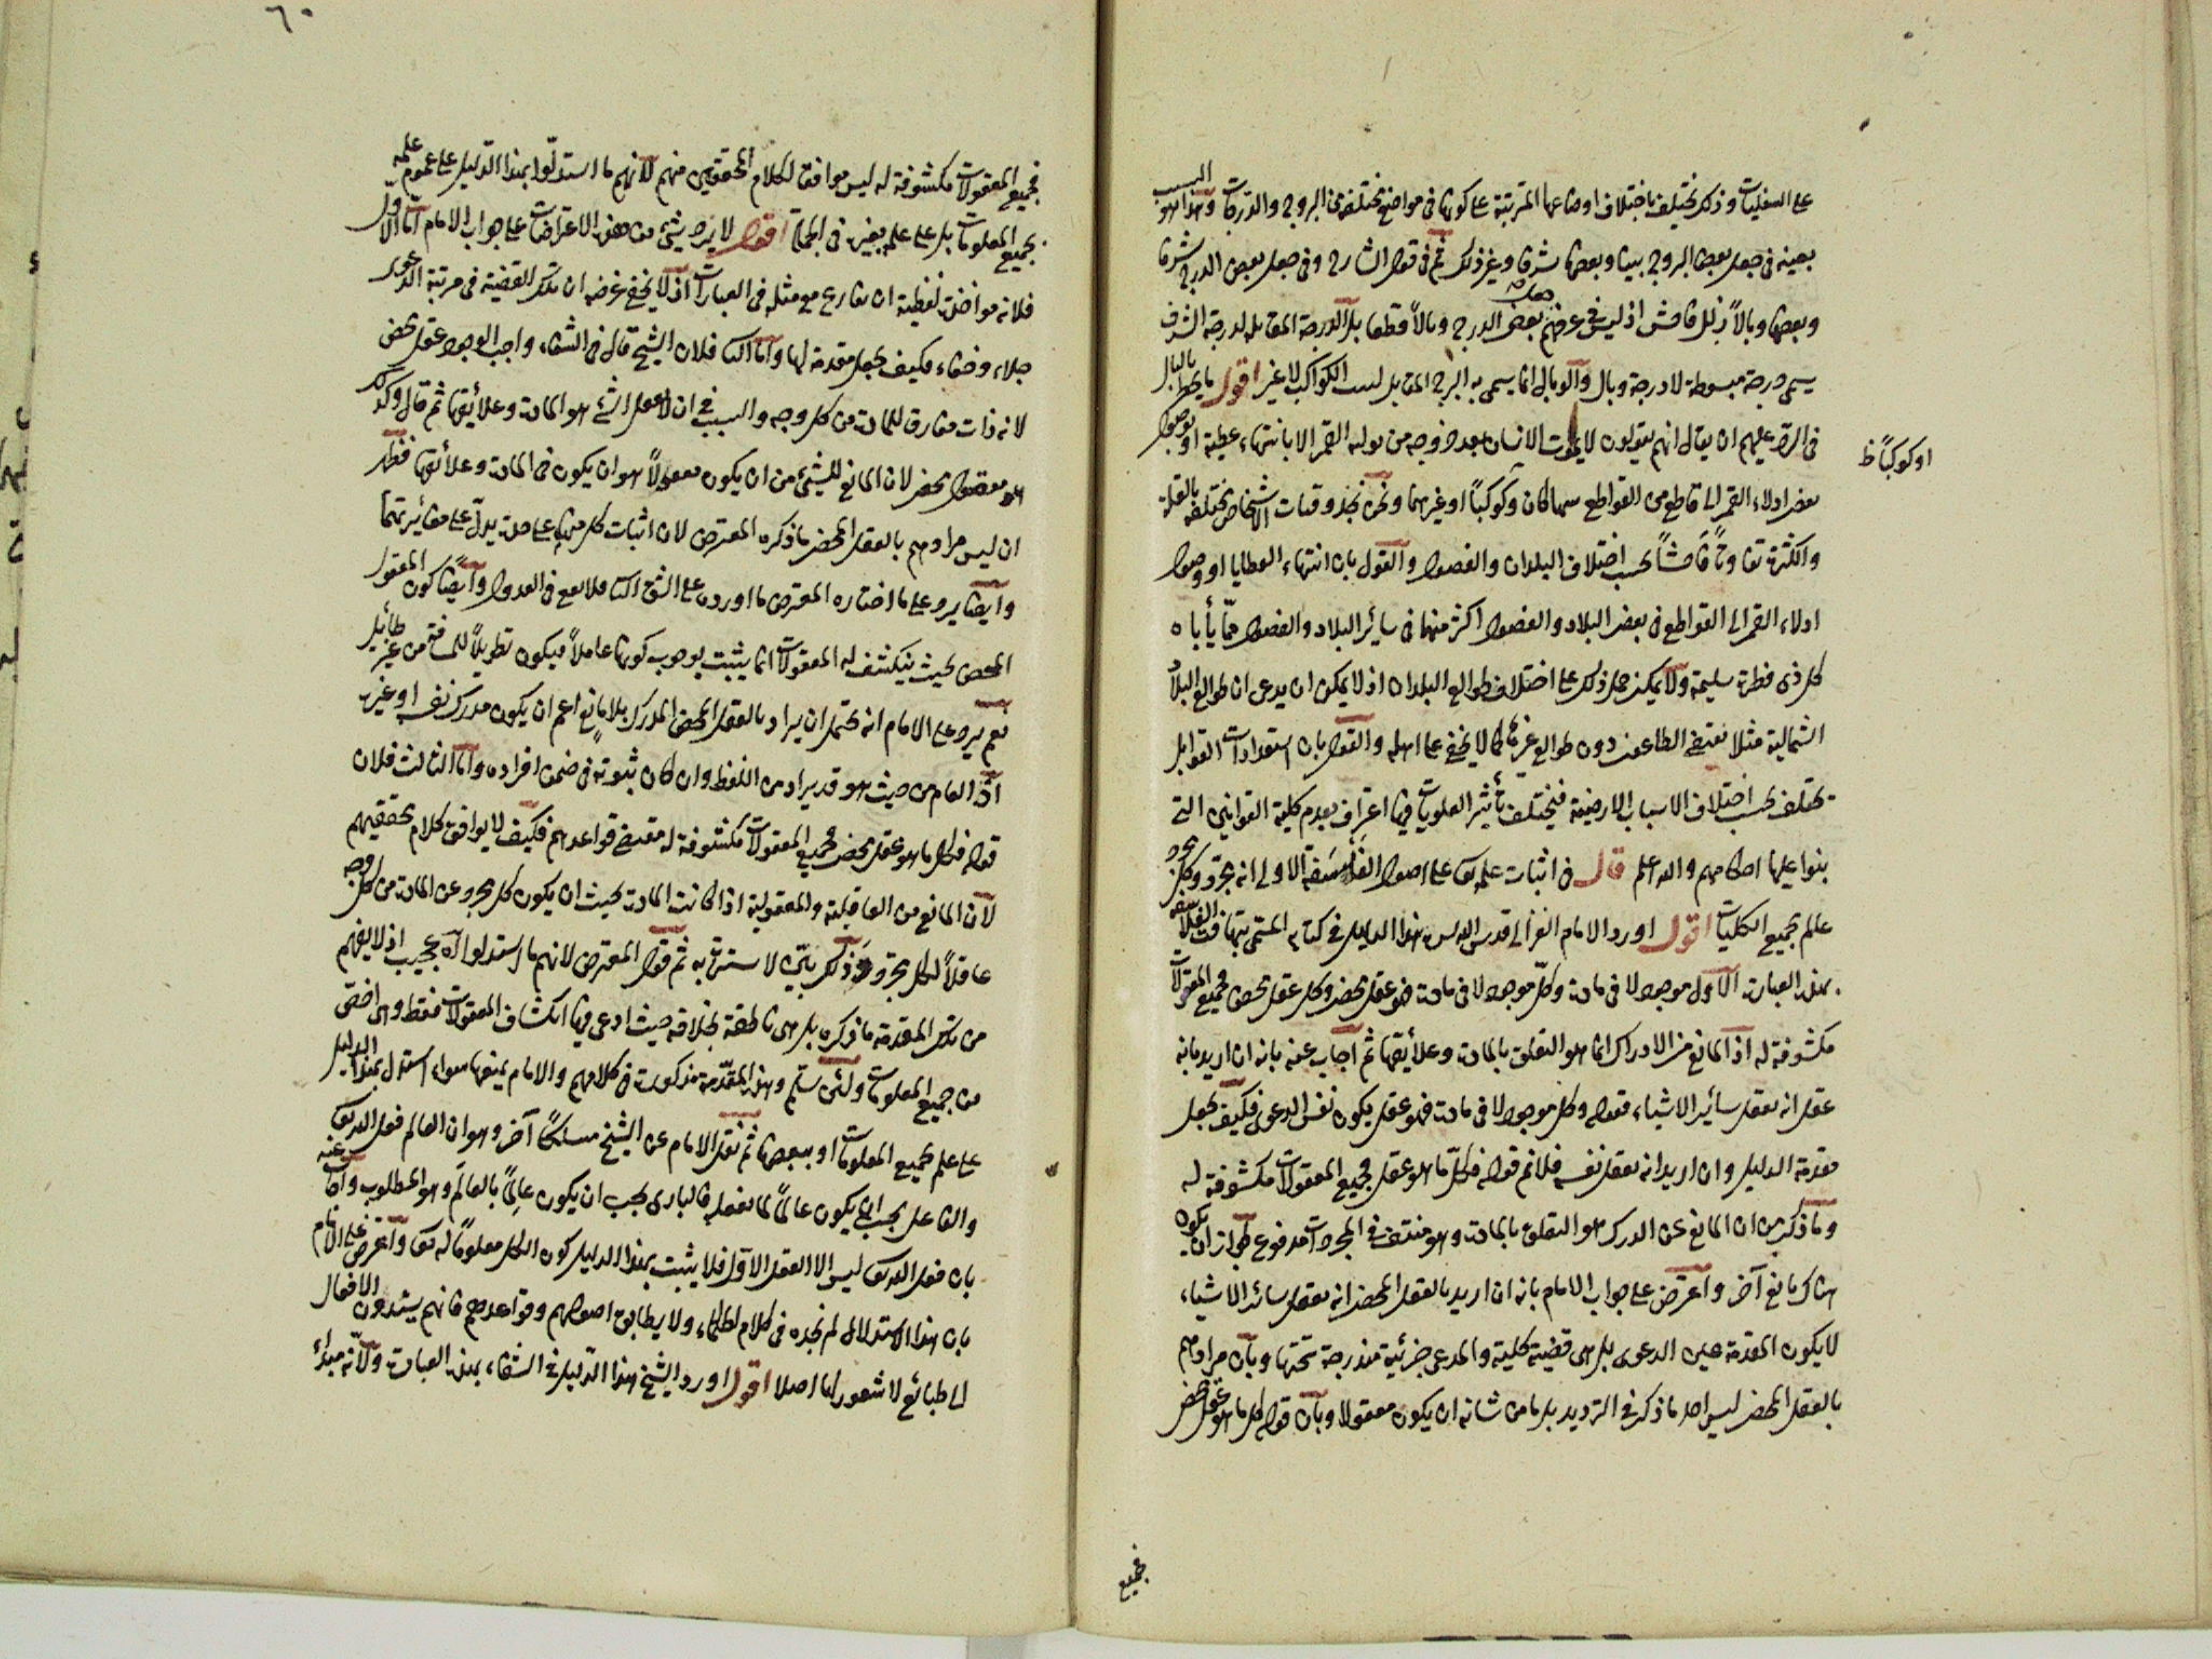 على السفليات وذلك يختلف باختلاف اوضاعها المترتبة على كونها في مواضع مختلفة من البروج والدرجات وهذا هو السبب
بعينه في جعل بعض البروج بيتا وبعضها شرفا وغير ذلك ثم في قول الشارح وفي جعل بعض الدرج شرفا
وبعضها وبالاً زلل فاحش اذ ليس في عرفهم بعض الدرج وبالاً قطعا بل الدرجة المقابله لدرجة الشرف
يسمى درجة هبوط لا درجة وبال والوبال انما يسمى به البرج المقابل لبيت الكواكب لا غير اقول ما يخطر بالبال
في الرد عليهم ان يقال انهم يقولون لا يموت الانسان بعد خروجه من تولد القمر الا بانتهاء عطية او بوصول
بعض ادلاء القمر الى قاطع من القواطع سهما كان وكوكباً او غيرهما ونحن نجد وفيات الاشخاص مختلفه بالقلة
او كوكباً ظ
والكثرة تفاوتاً فاحشاً بحسب اختلاف البلدان والفصول والقول بان انتهاء العطايا او وصول
ادلاء القمر الى القواطع في بعض البلاد والفصول اكثر منها في سائر البلاد والفصول ممّا يأباه
كل ذى فطرة سليمة ولا يمكن حمل ذلك على اختلاف طوالع البلدان اذ لا يمكن ان يدعى ان طوالع البلاد
الشمالية مثلا تقتضى الطاعون دون طوالع غيرها كما لا يخفى على اهله والقول بان استعدادات القوابل
تختلف بحسب اختلاف الاسباب الارضية فيختلف تأثير العلويات فيها اعتراف بعدم كلية القوانين التى
بنوا عليها احكامهم والله اعلم قال في اثبات علمه تعالى على اصول الفلاسفة الاولى انه مجرد وكل مجرد
عالم بجميع الكليات اقول اورد الامام الغزالى قدس الله سره هذا الدليل في كتابه المسمى بتهافت الفلاسفه
بهذه العبارت الاول موجود لا في مادت وكلّ موجود لا في مادت فهو عقل محض وكل عقل محض فجميع المعقولات
مكشوفة له اذ المانع من الادراك انما هو التعلق بالمادت وعلائقها ثم اجاب عنه بانه ان اريد بانه
عقل انه يعقل سائر الاشياء فقوله وكل موجود لا في مادت فهو عقل يكون نفس الدعوى فكيف يجعل
مقدمة الدليل وان اريد انه يعقل نفسه فلا نم قوله فكلّ ما هو عقل فجميع المعقولات مكشوفة له
وما ذكر من ان المانع عن الدرك هو التعلق بالمادت وهو منتف في المجردات مدفوع بجواز ان يكون
هناك مانع آخر واعترض على جواب الامام بانه ان اريد بالعقل المحض انه يعقل سائر الاشياء
لا يكون المقدمة عين الدعوى بل هى قضية كلية والمدعى جزئية مندرجة تحتها وبان مرادهم
بالعقل المحض ليس احد ما ذكر في الترديد بل ما من شانه ان يكون معقولا وبان قوله كل ما هو عقل محض
فجميع
٦٠
فجميع المعقولات مكشوفة له ليس موافقا لكلام المحققين منهم لانهم ما استدلّوا بهذا الدليل على عموم علمه
بجميع المعلومات بل على علمه بغيره في الجملة اقول لا يرد شئ من هذه الاعتراضات على جواب الامام اما الاول
فلانه مواخذة لفظية ان نقارع مع مثله في العبارات اذ لا يخفى غرضه ان تلك القضية في مرتبة الدعوى
جلاء وخفاء فكيف يجعل مقدمة لها واما الثاني فلان الشيخ قال في الشفاء واجب الوجود عقل محض
لانه ذات مفارق للمادت من كل وجه والسبب في ان لا يعقل الشئ هو المادت وعلائقها ثم قال وكذلك
هو معقول محض لان المانع للشئ من ان يكون معقولاً هو ان يكون في المادت وعلائقها فظهر
ان ليس مرادهم بالعقل المحض ما ذكره المعترض لان اثبات كل منهما على حدة يدلّ على مغايرتهما
وايضا يرد على ما اختاره المعترض ما اورده على الشق الثاني فلا نفع في العدول وايضاً كون المعقول
المحض بحيث ينكشف له المعقولات انما يثبت بوجوب كونها عاملاً فيكون تطويلاً للمسافة من غير طائل
نعم يرد على الامام انه يحتمل ان يراد بالعقل المحض المدرك بلا مانع اعم ان يكون مدرك نفسه او غيره
اذ العام من حيث هو قد يراد من اللفظ وان كان ثبوته في ضمن افراده واما الثالث فلان
قوله فكل ما هو عقل محض فجميع المعقولات مكشوفة له مقتضى قواعدهم فكيف لا يوافق كلام محققيهم
لان المانع من العاقلية والمعقولية اذا كانت المادت بحيث ان يكون كل مجرد عن المادت من كل وجه
عاقلاً لكل مجرد وذلك بيّن لا سترة به ثم قول المعترض لانهم ما استدلوا اه عجيب اذ لا يفهم
من تلك المقدمة ما ذكره بل هى ناطقة بخلافه حيث ادعى فيها انكشاف المعقولات فقط وهى اخصّ
من جميع المعلومات ولئن سلّم وهذه المقدّمة مذكورت في كلامهم والامام يمنعها سواء استدل بهذا الدليل
على علم بجميع المعلومات او ببعضها ثم نقل الامام عن الشيخ مسلكاً آخر وهو ان العالم فعل الله تعالى
والفاعل يجب ان يكون عالماً بما يفعله فالبارى يجب ان يكون عالِماً بالعالَم وهو المطلوب واجاب عنه
بان فعل الله تعالى ليس الا العقل الاول فلا يثبت بهذا الدليل كون الكل معلوماً له تعالى واعترض على الامام
بان هذا الاستدلال لم نجده في كلام الحكماء ولا يطابق اصولهم وقواعدهم فانهم يسندون الافعال
الى طبائع لا شعور لها اصلا اقول اورد الشيخ هذا الدليل في الشفاء بهذه العبارت ولانّه مبداء